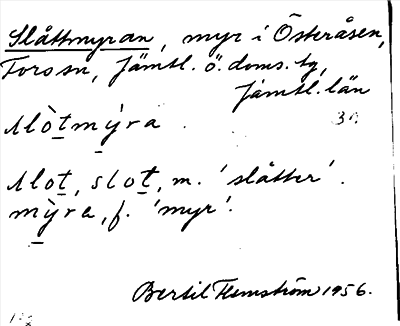 Slåttmyran, myr i Österåsen,
Forssn, Jämtl. ö. doms. tg,
Jämtl. län
slòtmỳra
3n
slot, slot, m. 'slåtter'.
mỳra, f. 'myr'.
Bertil Flemström 1956.